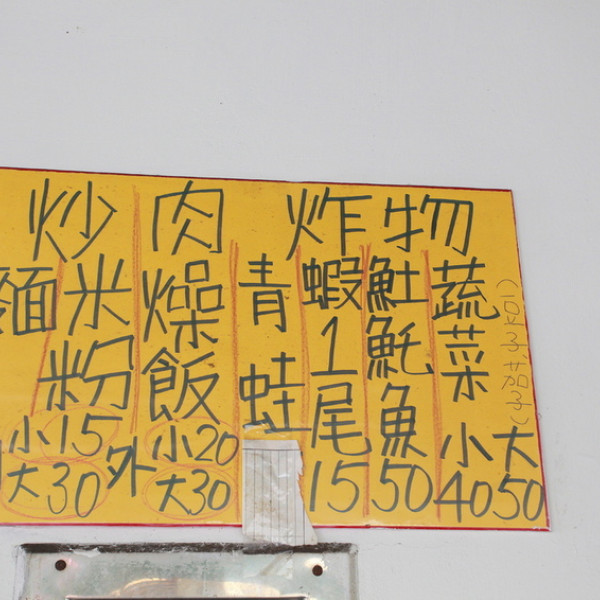 炒
麵
米粉
小15
大30
外
肉燥飯
小20
大30
炸物
青蛙
蝦1尾15
魠魠魚50
蔬菜
小40
大50